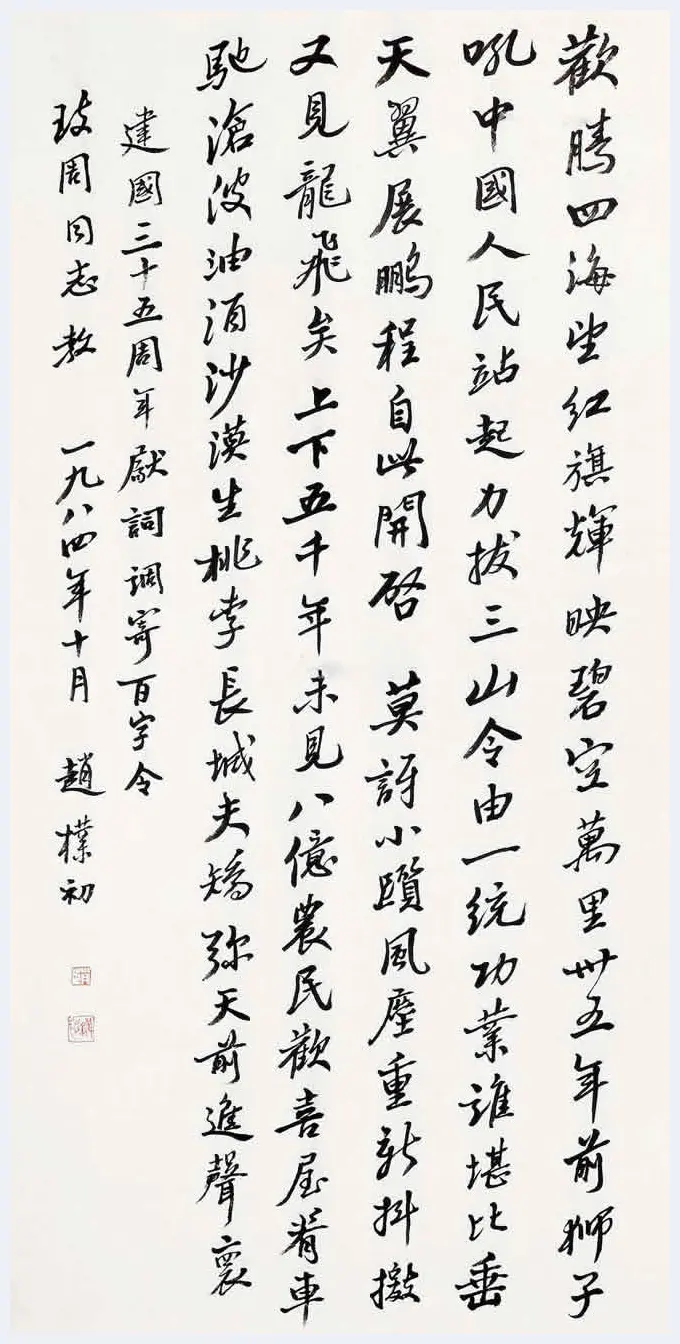 歡騰四海望紅旗輝映碧空萬里卅五年前獅子
吼中國人民站起力拔三山令由一統功業誰堪比垂
天翼展鵬程自此開啓 莫訝小躓風塵重新抖擻
又見龍飛矣上下五千年未見八億農民歡喜屋脊車
馳滄波油湧沙漠生桃李長城夫矯弥天前進聲裏
建國三十五周年獻詞調寄百字令
玫周同志教 一九八四年十月 趙樸初